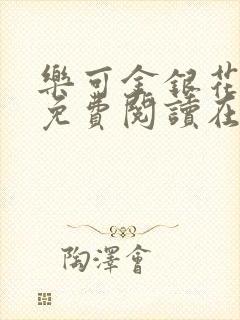 樂可金銀花
免費閱讀在
陶澤會